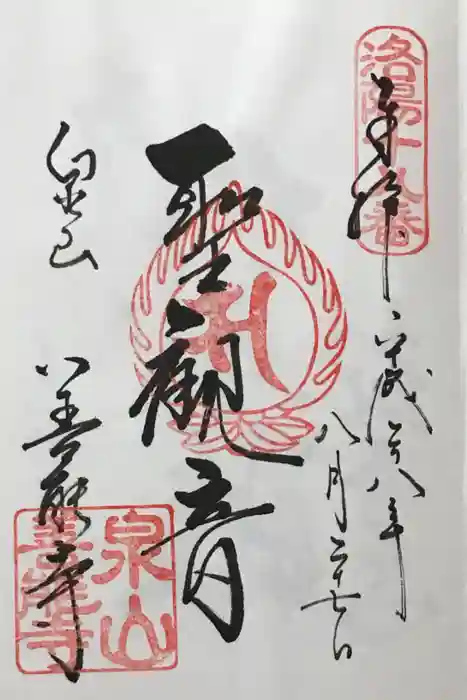 洛陽十八番
奉拝
平成二十八年
八月二十七日
聖観音
泉山
善能寺
泉山
善能寺